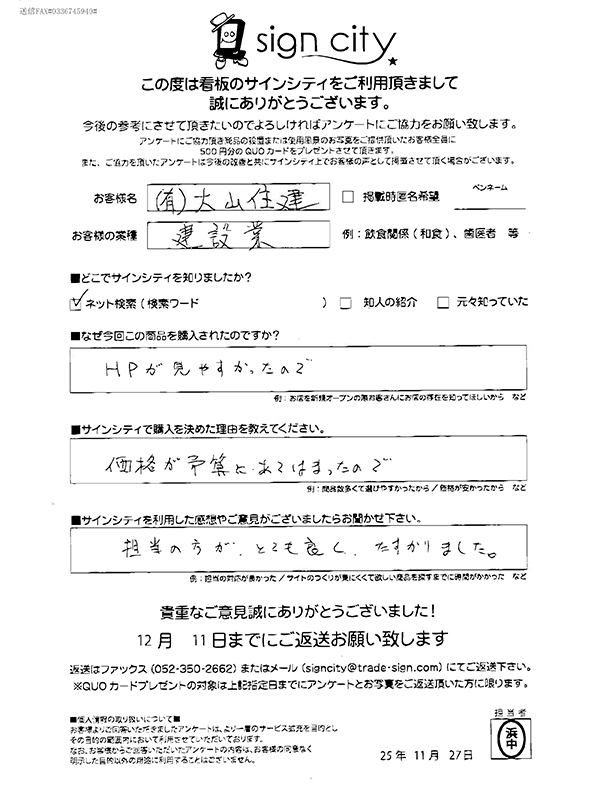 送信FAX#0336745940#
sign city
この度は看板のサインシティをご利用頂きまして
誠にありがとうございます。
今後の参考にさせて頂きたいのでよろしければアンケートにご協力をお願い致します。
アンケートにご協力頂き商品の設置または使用風景のお写真をご提供頂いたお客様全員に
500円分のQUOカードをプレゼントさせて頂きます。
また、ご協力を頂いたアンケートは今後の改善と共にサインシティ上でお客様の声として掲載させて頂く場合がございます。
お客様名 (有)大山住建 □ 掲載時匿名希望 ペンネーム
お客様の業種 建設業 例：飲食関係（和食）、歯医者 等
■どこでサインシティを知りましたか？
☑ ネット検索（検索ワード ） □ 知人の紹介 □ 元々知っていた
■なぜ今回この商品を購入されたのですか？
HPが見やすかったので
例：お店を新規オープンの際お客さんにお店の存在を知ってほしいから など
■サインシティで購入を決めた理由を教えてください。
価格が予算とあてはまったので
例：商品数多くて選びやすかったから／価格が安かったから など
■サインシティを利用した感想やご意見がございましたらお聞かせ下さい。
担当の方が、とても良く、たすかりました。
例：担当の対応が良かった／サイトのつくりが見にくくて欲しい商品を探すまでに時間がかかった など
貴重なご意見誠にありがとうございました！
12月 11日までにご返送お願い致します
返送はファックス（052-350-2662）またはメール（signcity@trade-sign.com）にてご返送下さい。
※QUOカードプレゼントの対象は上記指定日までにアンケートとお写真をご返送頂いた方に限ります。
■個人情報の取り扱いについて■
お客様よりご回答いただきましたアンケートは、より一層のサービス拡充を目的とし
その目的の範囲内において利用させていただいております。
なお、お客様からご回答いただいたアンケートの内容は、お客様の同意なく
明示した目的以外の用途に利用することはございません。
担当者
浜中
25年 11月 27日